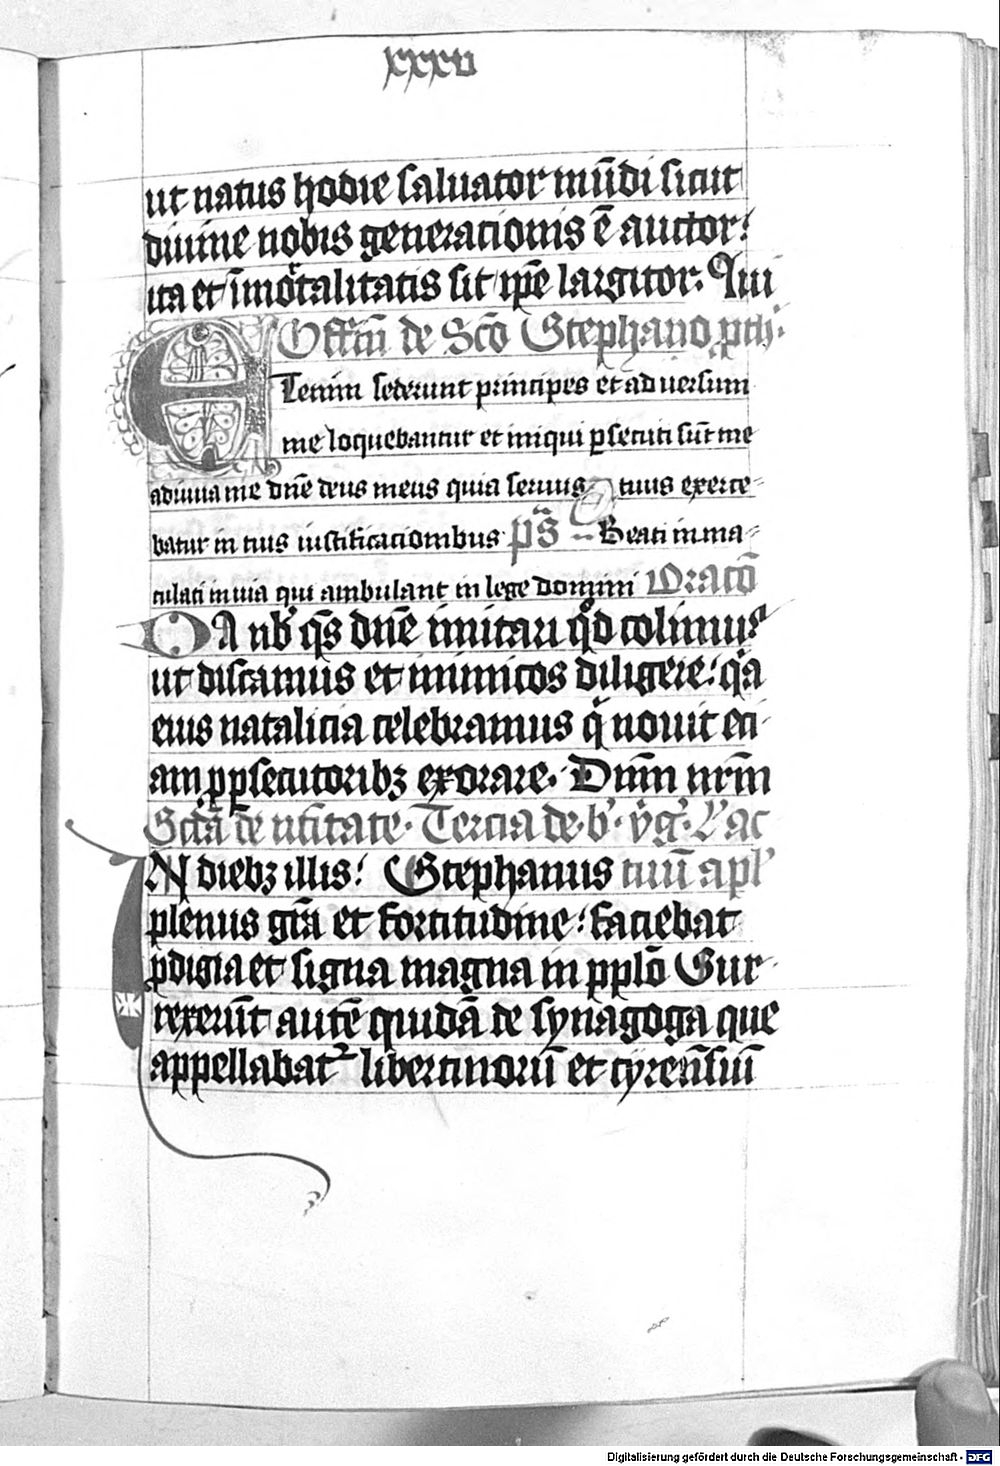 xxxv
ut natus hodie saluator mūdi sicut
diuine nobis generationis ē auctor:
ita et īmortalitatis sit ip̄e largitor. Qui
Offm̄ de Sc̄o Stephano pth̄.
Etenim sederunt principes et aduersum
me loquebantur et iniqui psecuti sūt me
adiuua me dn̄e deus meus quia seruus tuus exerce=
batur in tuis iustificationibus p̄s Beati inma=
culati in uia qui ambulant in lege domini Oratō
Da nb̄ q̄s dn̄e imitari qd colimus
ut discamus et inimicos diligere: qa
eius natalicia celebramus q̄ nouit eti-
am p psecutoribꝫ exorare. Dnm̄ nrm̄
Sctā de ... Tercia de b̄ v̄g̅ L' ac
IN diebꝫ illis: Stephanus tuū apl'
plenus gr̄a et fortitudine: faciebat
pdigia et signa magna in pplō Sur-
rexerūt autē quidā de synagoga que
appellabat᷑ libertinorū et cyrēnsiū
Digitalisierung gefördert durch die Deutsche Forschungsgemeinschaft - DFG